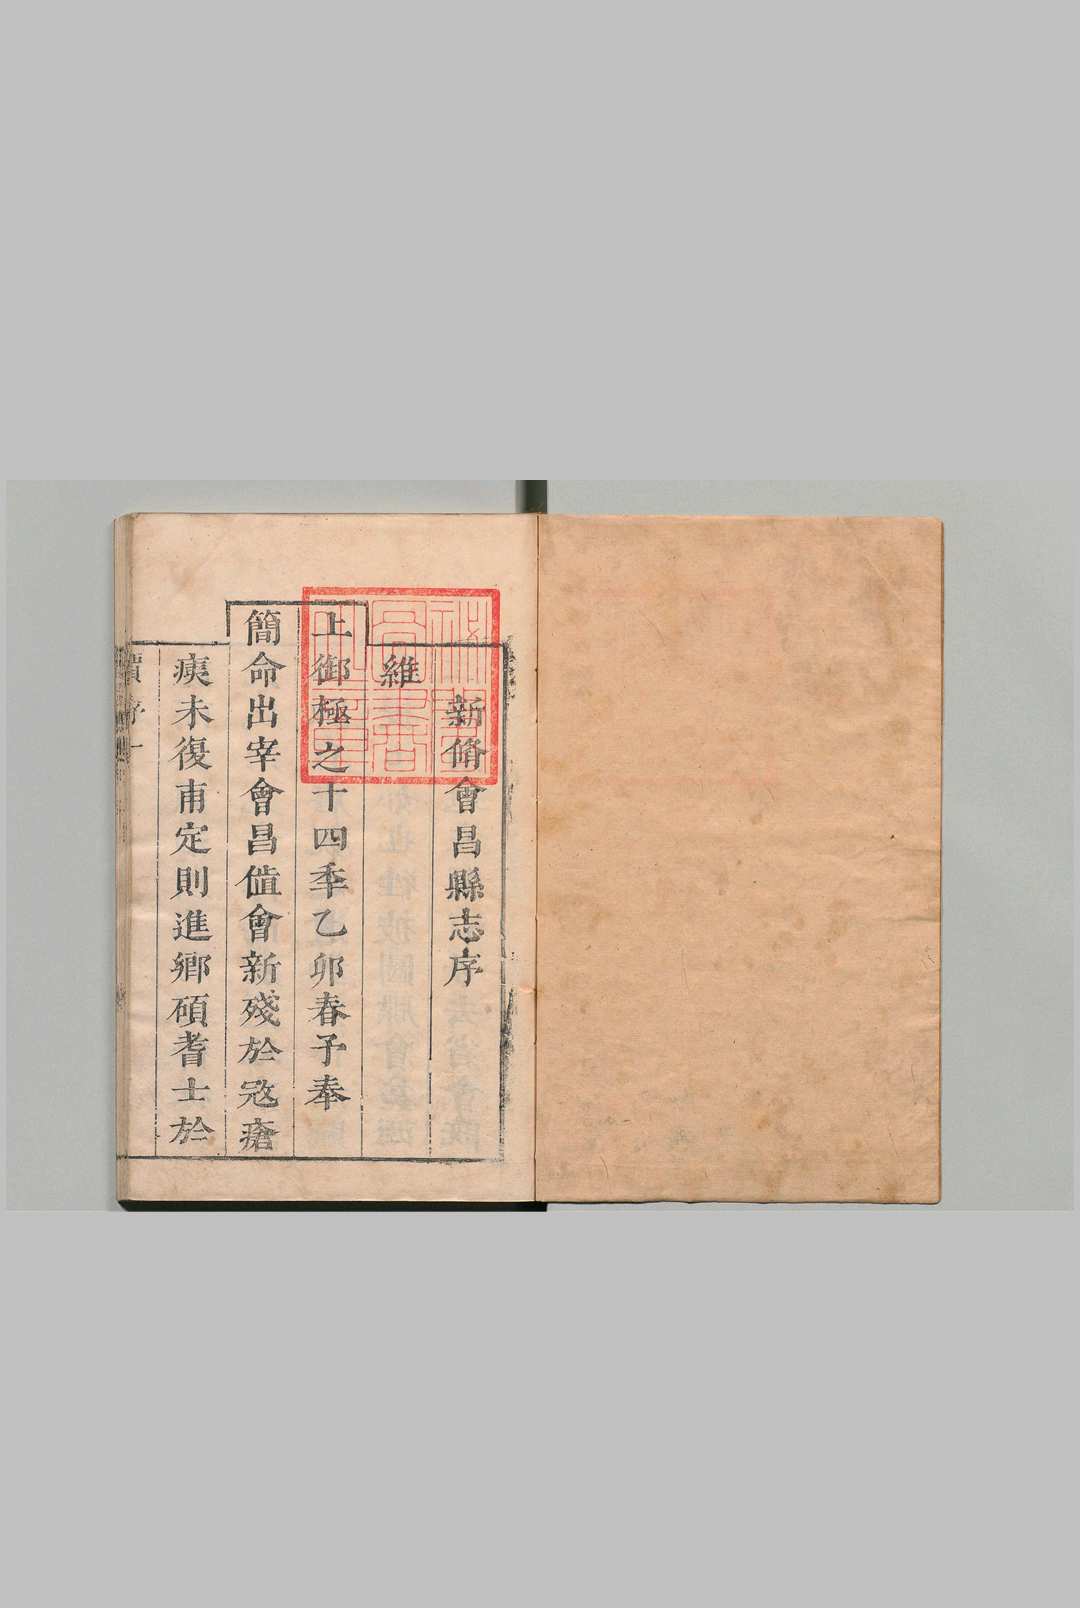 新脩會昌縣志序
維
上御極之十四季乙卯春予奉
簡命出宰會昌值會新殘於寇瘡
痍未復甫定則進鄉碩耆士於
序一